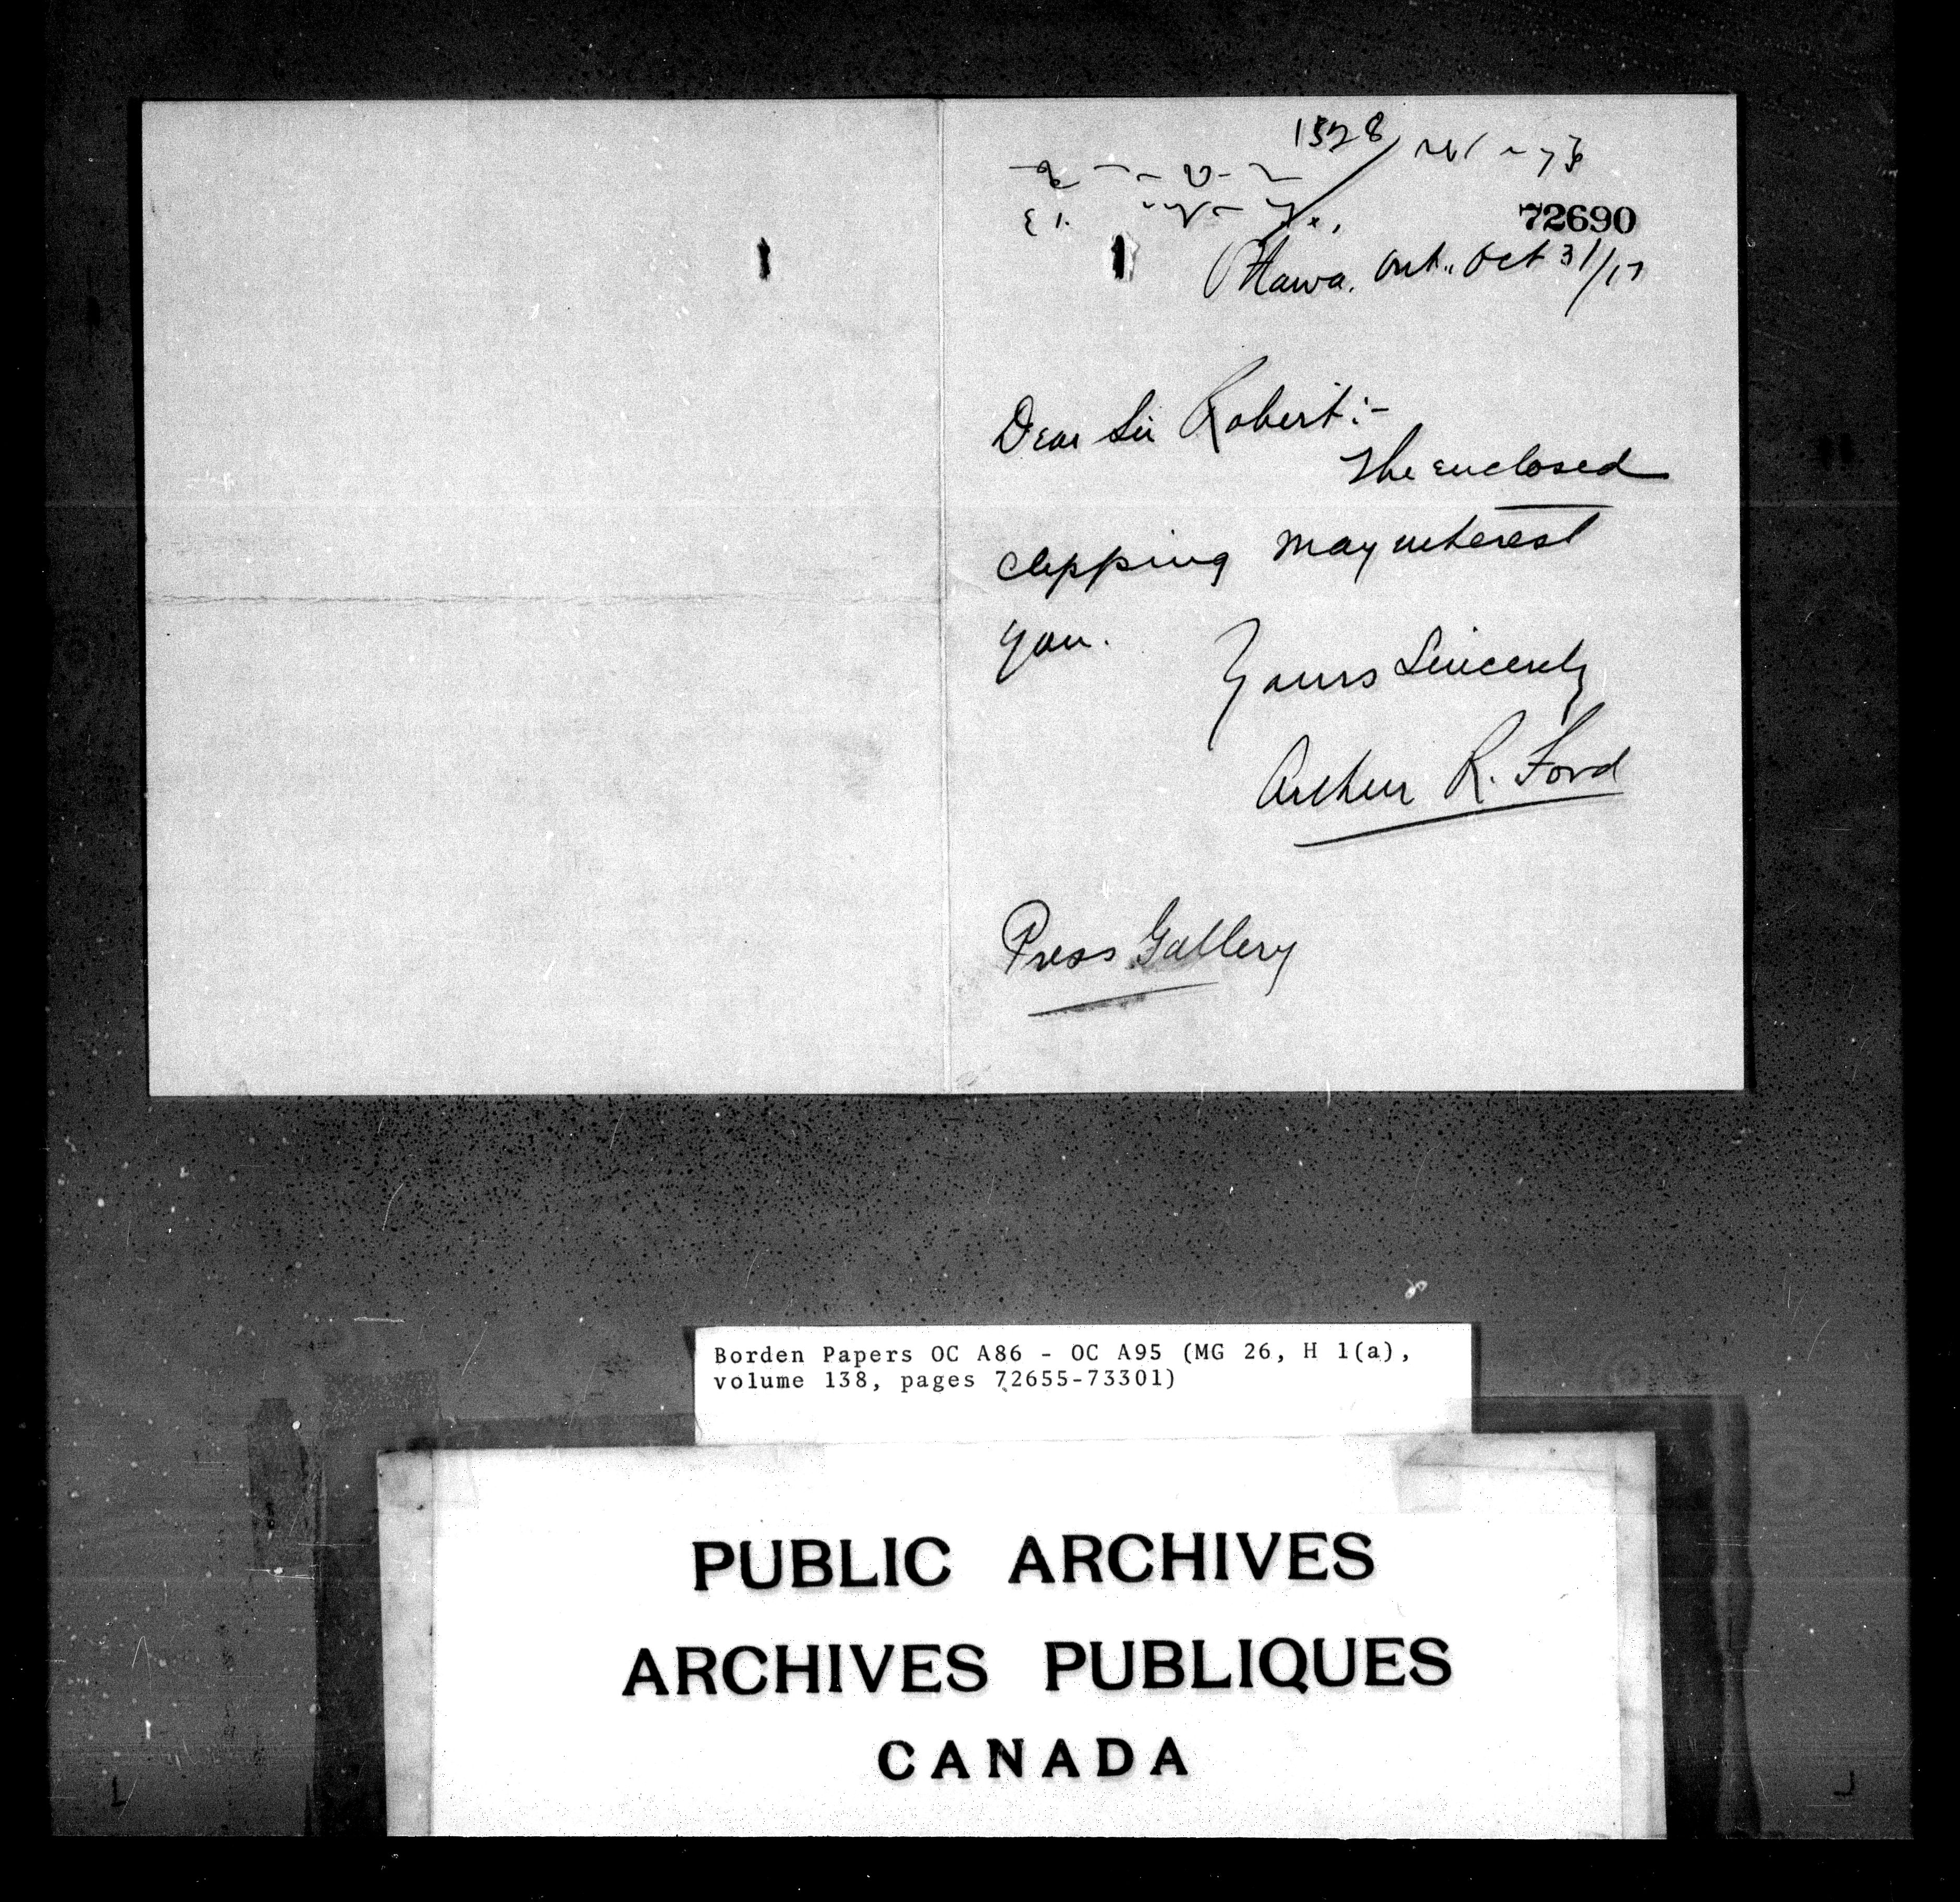 1528
72690
Ottawa. Ont.. Oct 31/17
Dear Sir Robert:-
The enclosed
clipping may interest
you.
Yours Sincerely
Arthur R. Ford
Press Gallery
Borden Papers OC A86 - OC A95 (MG 26, H 1(a),
volume 138, pages 72655-73301)
PUBLIC ARCHIVES
ARCHIVES PUBLIQUES
CANADA